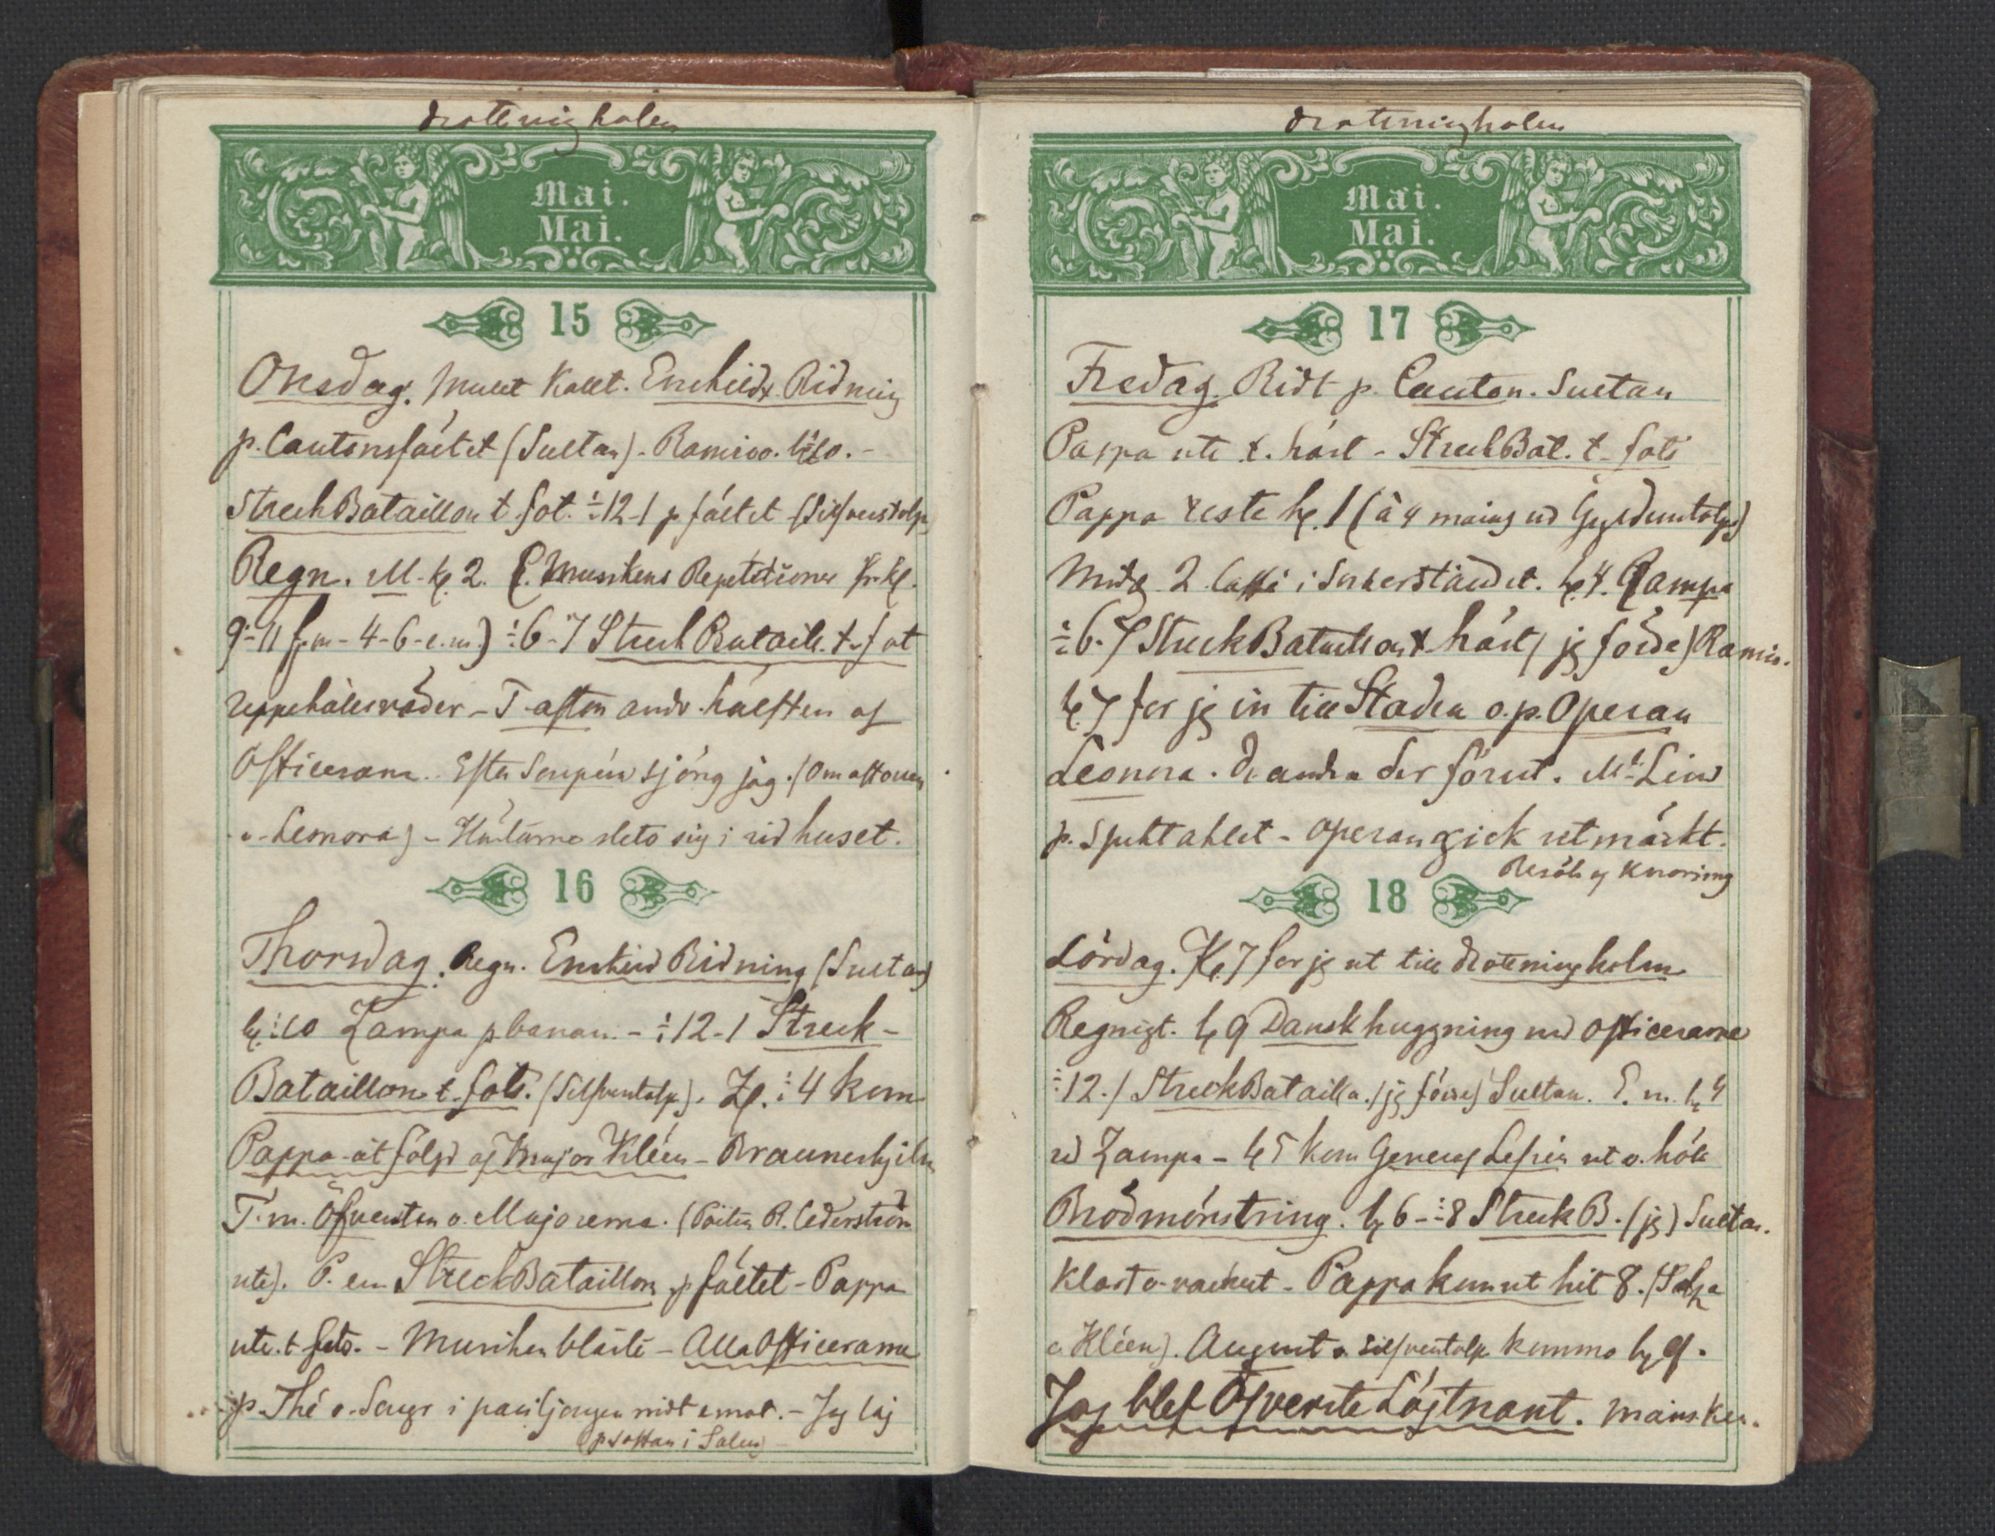 Drottningholm
Mai.
Mai.
15
Onsdag. Mulet Kallt. Enskild Ridning
p. Cantonsfältet (Sultan). Ramiro. kl ½10. -
StreckBataillon t. fot. ½12-1 p fältet (Silfverstolpe)
Regn. M. kl. 2. (Musikens Repetitioner fr. kl.
9-11 f.m - 4-6 - e.m.) ½6-7 Streck Bataill. t. fot
- T. afton andr. hälften af
Officerarne. Efter Soupén sjöng jag. (Om aftonen
Leonora) - sig i ridhuset.
16
Thorsdag. Regn. Enskild Ridning (Sultan)
kl. ½10 Zampa p banan. - ½12-1 Streck-
Bataillon t. fots. (Silfverstolpe). Kl. ½4 kom
Pappa åtföljd af Major Kléen - Braunerhjelm
T. m. Öfversten o. Majorerna. ( R. Cederström
ute). P. em StreckBataillon p fältet - Pappa
ute t. fots. - Musiken blåste - Alla Officerarne
p. Thé o. Soupé i paviljongen midt emot. - Jag låg
p soffan i Salen
Drottningholm
Mai.
Mai.
17
Fredag. Ridt p. Canton. Sultan
Pappa ute t. häst - StreckBat. t. fots
Pappa reste kl. 1 (à 4 mains md Gyldenstolpe)
Midd. 2. Caffé i Sockerståndet. kl. 4. Zampa
½6-7 StreckBataillon t. häst (jg förde) Ramiro.
kl. 7 for jg in till Staden o. p. Operan
Leonora. De andra der förut. Ml. Lind
p. Spektaklet - Operan gick utmärkt.
Besök af Knorring
18
Lördag. Kl. 7 for jg ut till Drottningholm
Regnigt. kl 9 Danskhuggning md Officerarne
½12-1 StreckBataillon. (jg förde) Sultan. E. m. kl 4
rd Zampa - kl 5 kom General Lefrén ut o. höll
Brödmönstring. kl 6-½8 StreckB. (jg) Sultan.
Klart o. vackert - Pappa kom ut hit 8.
o Kléen). August o Silfverstolpe kommo kl 9.
Jag blef Öfverste Löjtnant.